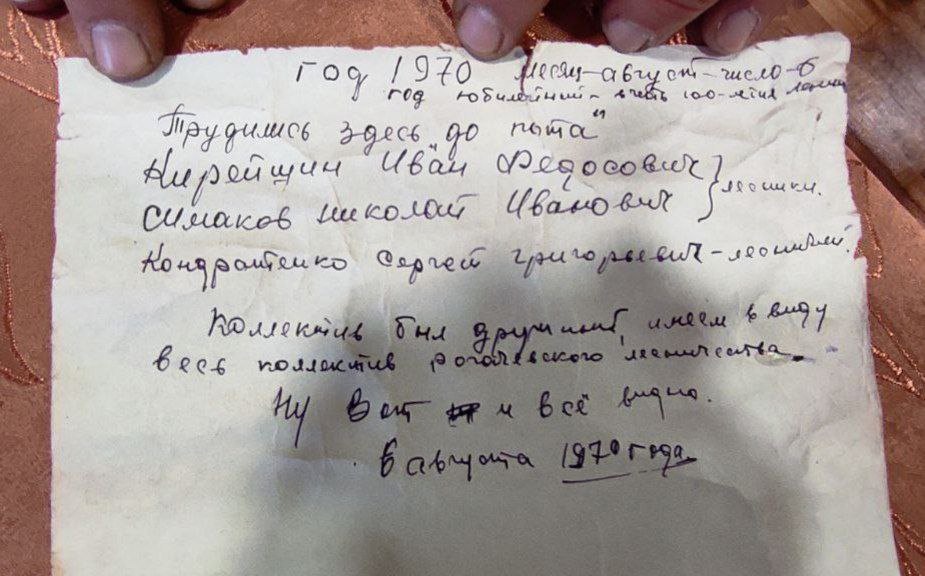 год 1970 месяц-август-число-6
год юбилейный - в честь 100-летия Ленина
Трудились здесь до пота"
Кирейшин Иван Федосович } лесники.
Симаков Николай Иванович
Кондратенко Сергей Григорьевич - лесничий.
Коллектив был дружный, имеем в виду
весь коллектив Рогачевского лесничества.
Ну Вот и всё видно.
6 августа 1970 года.